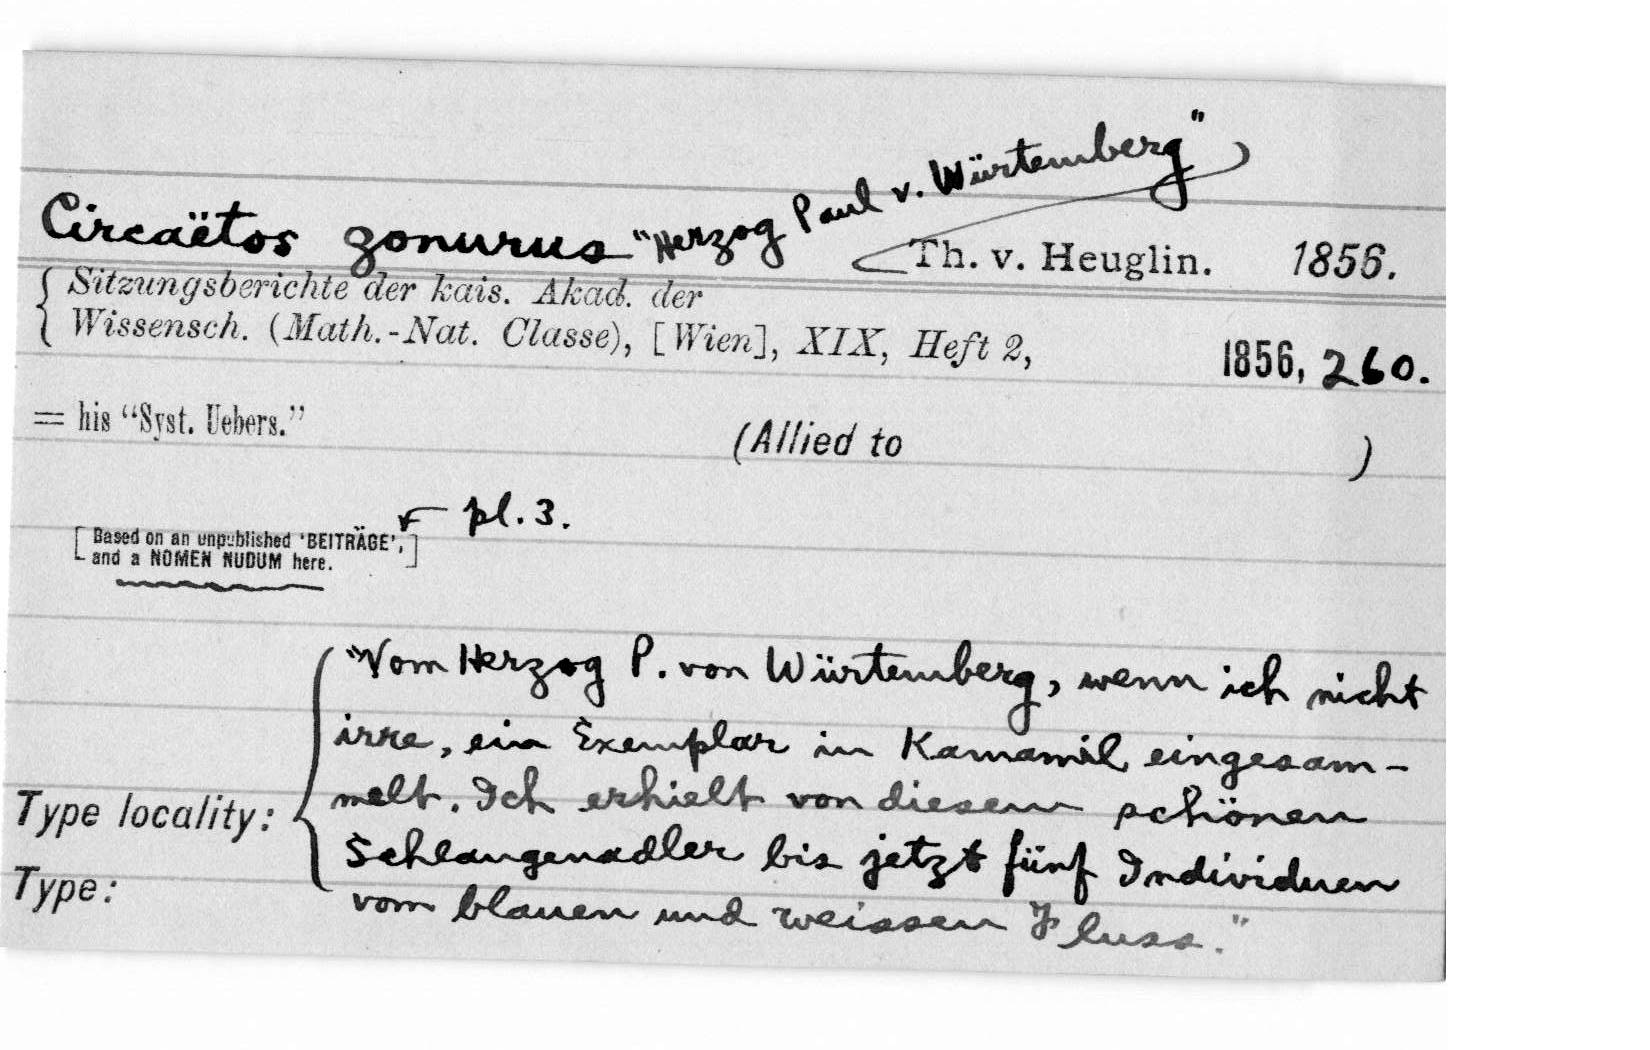 Circaëtos zonurus "Herzog Paul v. Würtemberg"
Th. v. Heuglin. 1856.
Sitzungsberichte der kais. Akad. der
Wissensch. (Math.-Nat. Classe), [Wien], XIX, Heft 2, 1856, 260.
= his "Syst. Uebers."
(Allied to )
pl. 3.
[Based on an unpublished 'BEITRÄGE',
and a NOMEN NUDUM here.]
"Vom Herzog P. von Würtemberg, wenn ich nicht
irre, ein Exemplar in Kamamil eingesam-
Type locality: melt. Ich erhielt von diesem schönen
Schlangenadler bis jetzt fünf Individuen
Type: vom blauen und weissen Fluss."